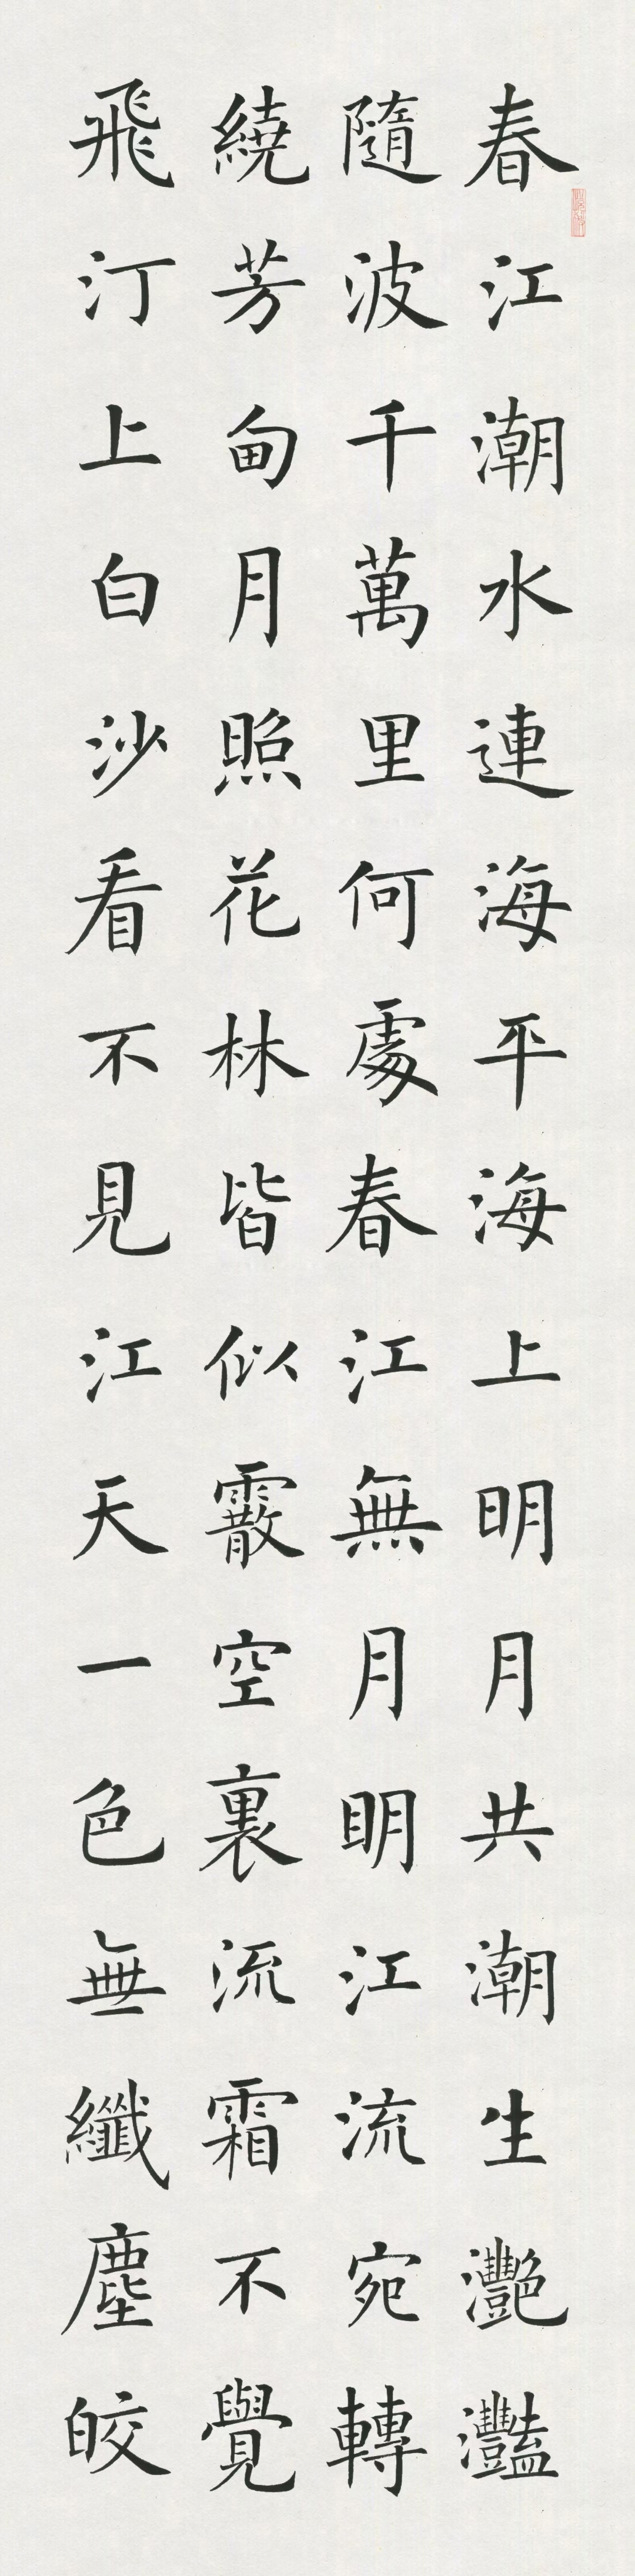 春江潮水連海平海上明月共潮生灧灩
隨波千萬里何處春江無月明江流宛轉
繞芳甸月照花林皆似霰空裏流霜不覺
飛汀上白沙看不見江天一色無纖塵皎